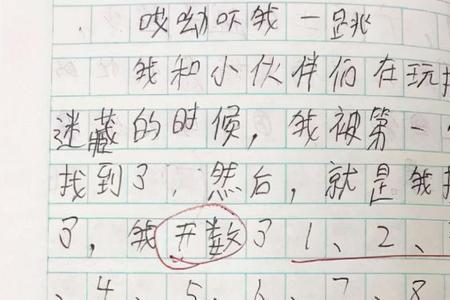 哎呦吓我一跳
我和小伙伴们在玩
迷藏的时候，我被第一
找到了，然后，就是我
了，我开数了1、2、
、4、5、6、7、8